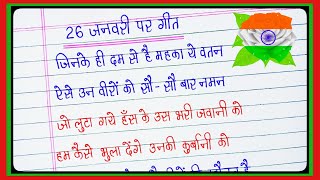 26 जनवरी पर गीत
जिनके ही दम से है महका ये वतन
ऐसे उन वीरों को सौ-सौ बार नमन
जो लुटा गये हँस के उस भरी जवानी को
हम कैसे भुला देंगे उनकी कुर्बानी को